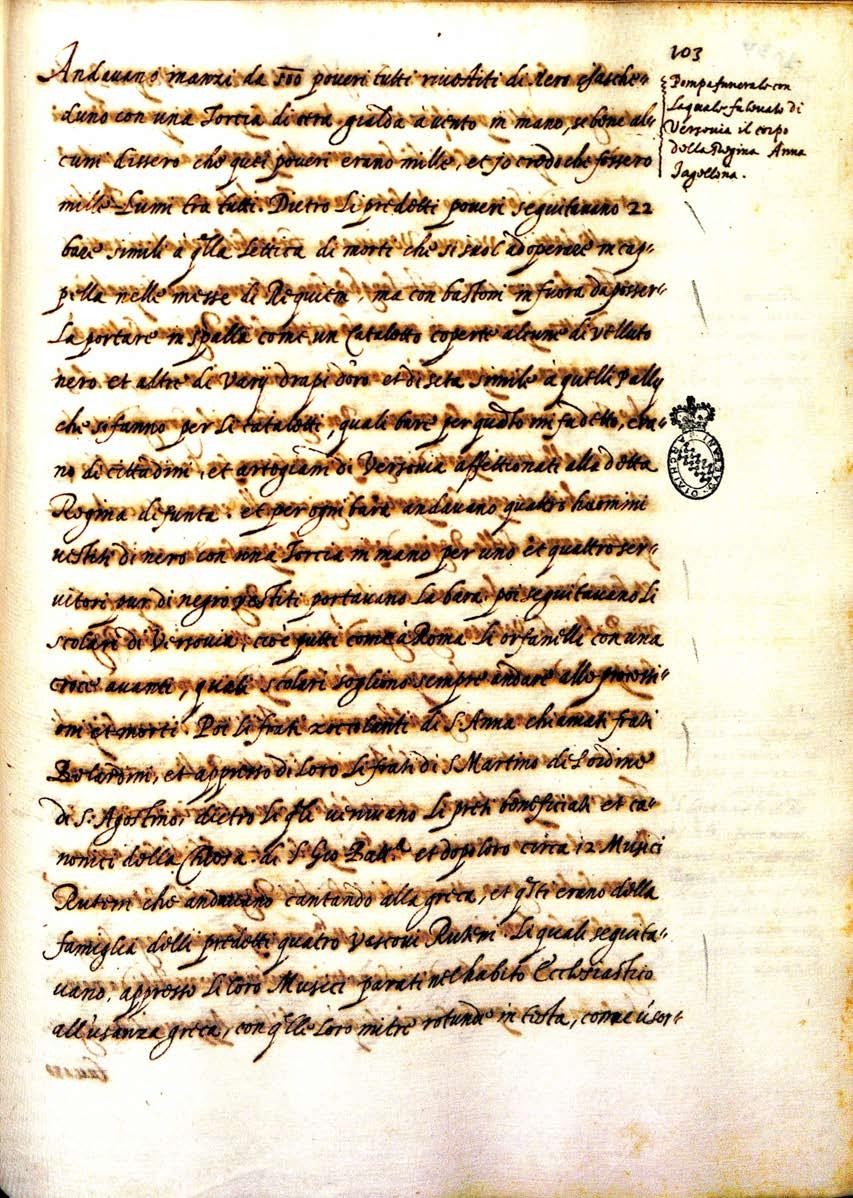 103
Pompa funerale con
laquale fu levato di
Versovia il corpo
della Regina Anna
Jagellona.
Andavano inanzi da 500 poveri tutti rivestiti di nero ciasche-
duno con una Torcia di cera gialda à vento in mano, se bene al-
cuni dissero che quei poveri erano mille, et jo credo che fossero
mille Lumi tra tutti. Dietro li predetti poveri seguitavano 22
bare simili à qlla lettica di morti che si suol adoperare in cap-
pella nelle messe di Requiem, ma con bastoni in fuora da posser-
la portare in spalla come un Cataletto coperte alcune di velluto
nero et altre di varij drapi d'oro et di seta simile à quelli Pally
che si fanno per li cataletti, quali bare per quāto mi fu detto, era-
no di cittadini, et artogiani di Versovia affettionati alla detta
Regina defunta. et per ogni bara andavano quattro huomini
vestiti di nero con una Torcia in mano per uno et quattro ser-
vitori pur di negro vestiti portavano la bara. poi seguitavano li
scolari di Versovia, cioè putti come à Roma li orfanelli con una
croce avanti, quali scolari sogliono sempre andare alle processi-
oni et morti. Poi li frati zoccolanti di S. Anna chiamati frati
Belardini, et appresso di loro li frati di S Martino de l'ordine
di S. Agostino, dietro li qli venivano li preti beneficiati et ca-
nonici della Chiesa di S. Gio Batt.a et dopo loro circa 12 Musici
Ruteni che andavano cantando alla greca, et qsti erano della
famiglia delli predetti quatro Vescovi Ruteni. Li quali seguita-
vano, appresso li loro Musici parati nel habito Ecclesiastico
all'usanza greca, con qlle loro mitre rotunde in testa, come
ARCHIVIO